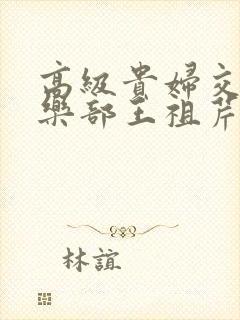 高級貴婦交
樂部王祖芹
林誼